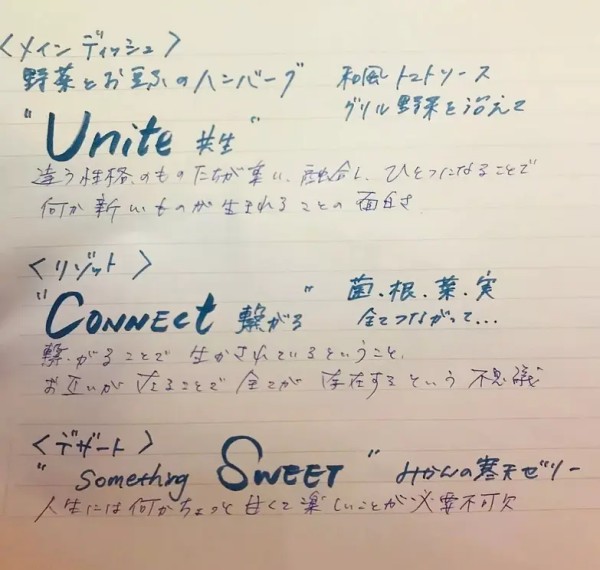 <メインディッシュ>
野菜とお豆ふのハンバーグ 和風トマトソース
グリル野菜を沿えて
"Unite 共生"
違う性格のものたちが集い、融合し、ひとつになることで
何か新しいものが生まれることの面白さ
<リゾット>
"CONNECt 繋がる" 菌、根、葉、実
全てつながって...
繋がることで生かされているということ、
お互いが在ることで全てが存在するという不思議
<デザート>
"Something SWEET" みかんの寒天ゼリー
人生には何かちょっと甘くて楽しいことが必要不可欠